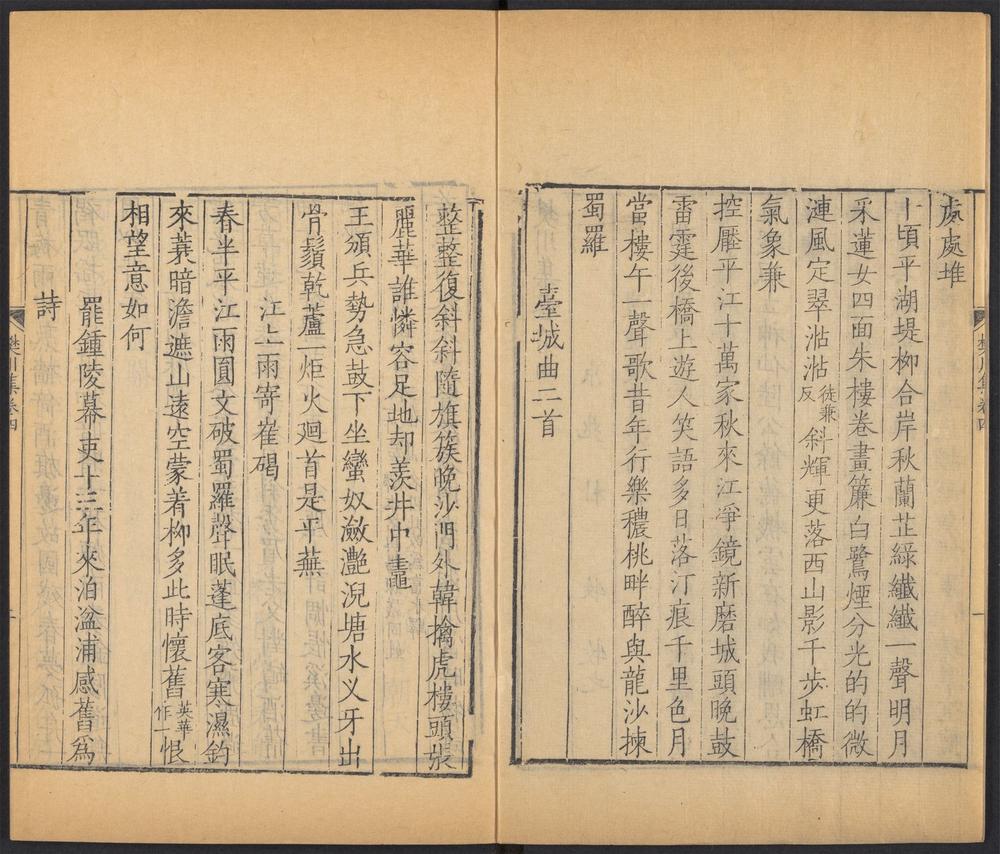 樊川集卷四
處處堆
十頃平湖堤柳合岸秋蘭芷綠纖纖一聲明月
采蓮女四面朱樓卷畫簾白鷺煙分光的的微
漣風定翠湉湉徒兼反斜輝更落西山影千步虹橋
氣象兼
控壓平江十萬家秋來江凈鏡新磨城頭晚鼓
雷霆後橋上遊人笑語多日落汀痕千里色月
當樓午一聲歌昔年行樂穠桃畔醉與龍沙揀
蜀羅
臺城曲二首
整整復斜斜隨旗簇晚沙門外韓擒虎樓頭張
麗華誰憐容足地却羨井中鼃
王頒兵勢急鼓下坐蠻奴瀲灧淣塘水义牙出
骨鬚乾蘆一炬火廻首是平蕪
江上雨寄崔碣
春半平江雨圓文破蜀羅聲眠蓬底客寒濕釣
來蓑暗澹遮山遠空蒙著柳多此時懷舊英華作一恨
相望意如何
罷鍾陵幕吏十三年來泊湓浦感舊爲
詩
樊川集卷四